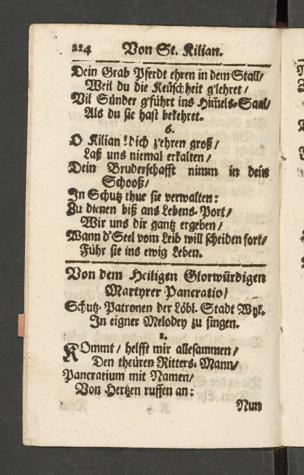 224 Von St. Kilian.
Dein Grab Pferdt ehren in dem Stall/
Weil du die Keüschheit g'lehret/
Vil Sünder g'führt ins Him̃els-Saal/
Als du sie hast bekehret.
6.
O Kilian! dich z'ehren groß/
Laß uns niemal erkalten/
Dein Bruderschafft nimm in dein
Schooß/
In Schutz thue sie verwalten:
Zu dienen biß ans Lebens-Port/
Wir uns dir gantz ergeben/
Wann d'Seel vom Leib will scheiden fort/
Führ sie ins ewig Leben.
Von dem Heiligen Glorwürdigen
Martyrer Pancratio/
Schutz-Patronen der Löbl. Stadt Wyl.
In eigner Melodey zu singen.
1.
KOmmt/ helfft mir allesammen/
Den theüren Ritters-Mann/
Pancratium mit Namen/
Von Hertzen ruffen an:
Nun